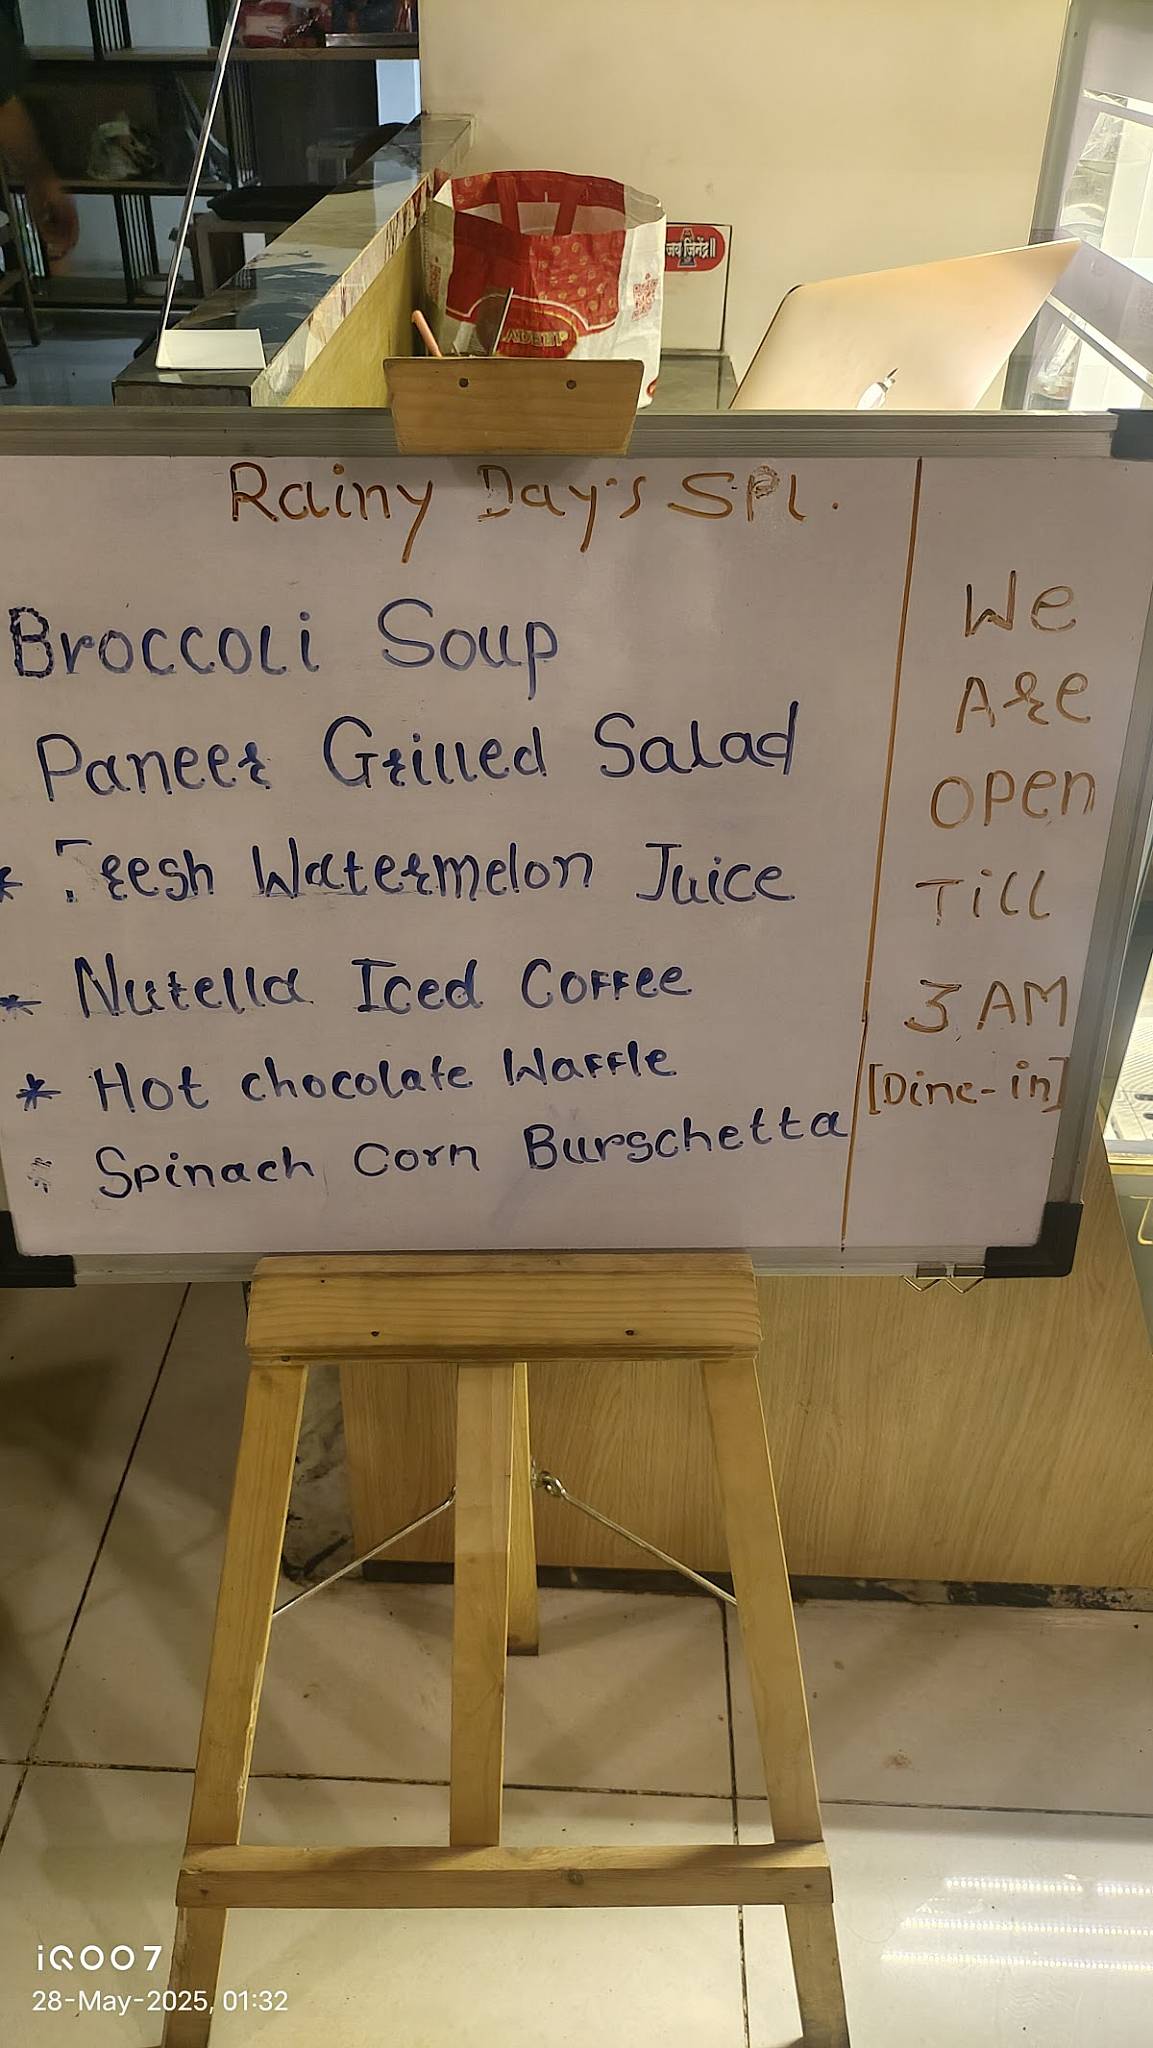 जय जिनेंद्र॥
Rainy Day's SPl.
Broccoli Soup
Paneer Grilled Salad
* Fresh Watermelon Juice
* Nutella Iced Coffee
* Hot chocolate Waffle
* Spinach Corn Burschetta
We
Are
OPen
Till
3 AM
[Dine-in]
iQOO 7
28-May-2025, 01:32